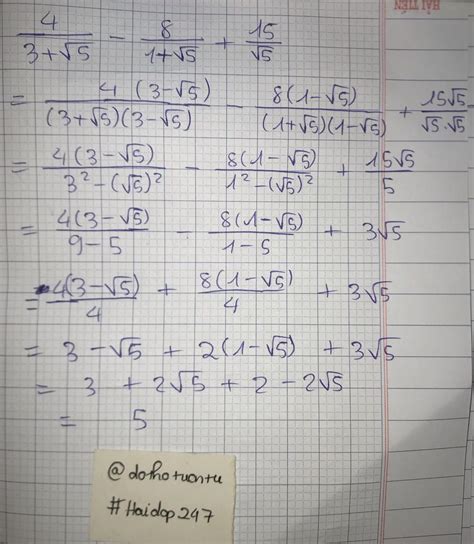 HẢI TIẾN
4/(3+√5) - 8/(1+√5) + 15/√5
= 4(3-√5)/((3+√5)(3-√5)) - 8(1-√5)/((1+√5)(1-√5)) + 15√5/(√5.√5)
= 4(3-√5)/(3²-(√5)²) - 8(1-√5)/(1²-(√5)²) + 15√5/5
= 4(3-√5)/(9-5) - 8(1-√5)/(1-5) + 3√5
= 4(3-√5)/4 + 8(1-√5)/4 + 3√5
= 3-√5 + 2(1-√5) + 3√5
= 3 + 2√5 + 2 - 2√5
= 5
@dothotuontu
#Haidop247